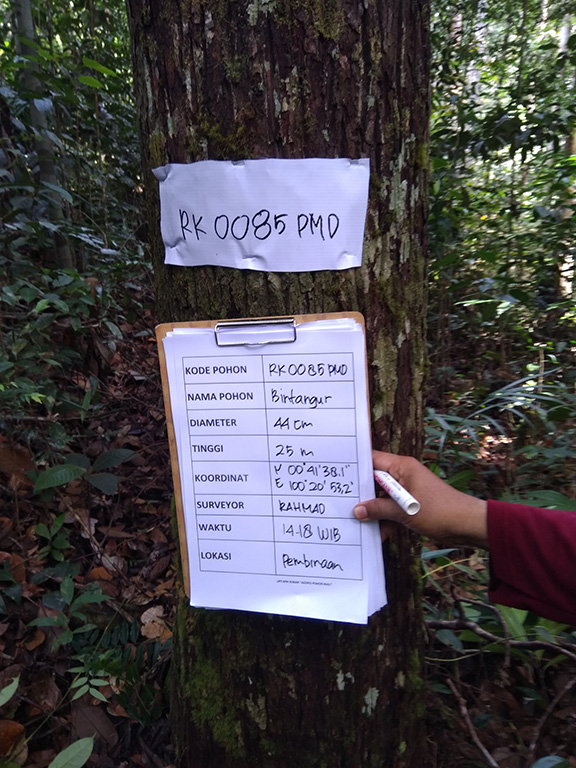 RK 0085 PMD
KODE POHON RK 0085 PMD
NAMA POHON Bintangur
DIAMETER 44 cm
TINGGI 25 m
KOORDINAT N 00°41'38.1"
E 100°20'53,2"
SURVEYOR RAHMAD
WAKTU 14-18 WIB
LOKASI Pembinaan